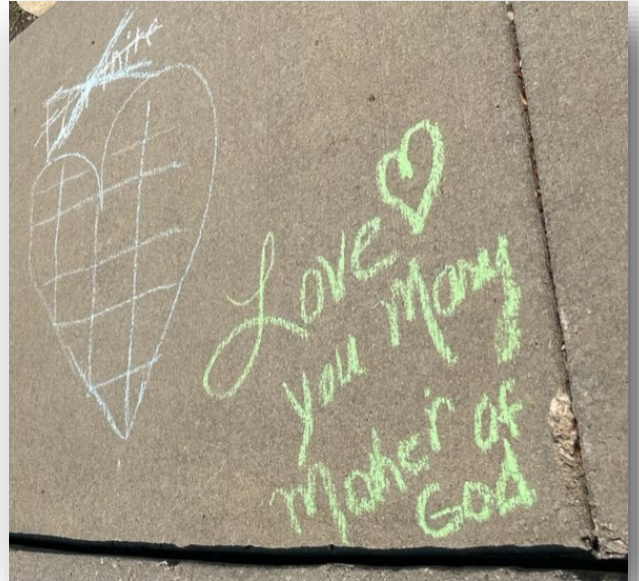 Love
you Mary
Mother of
God